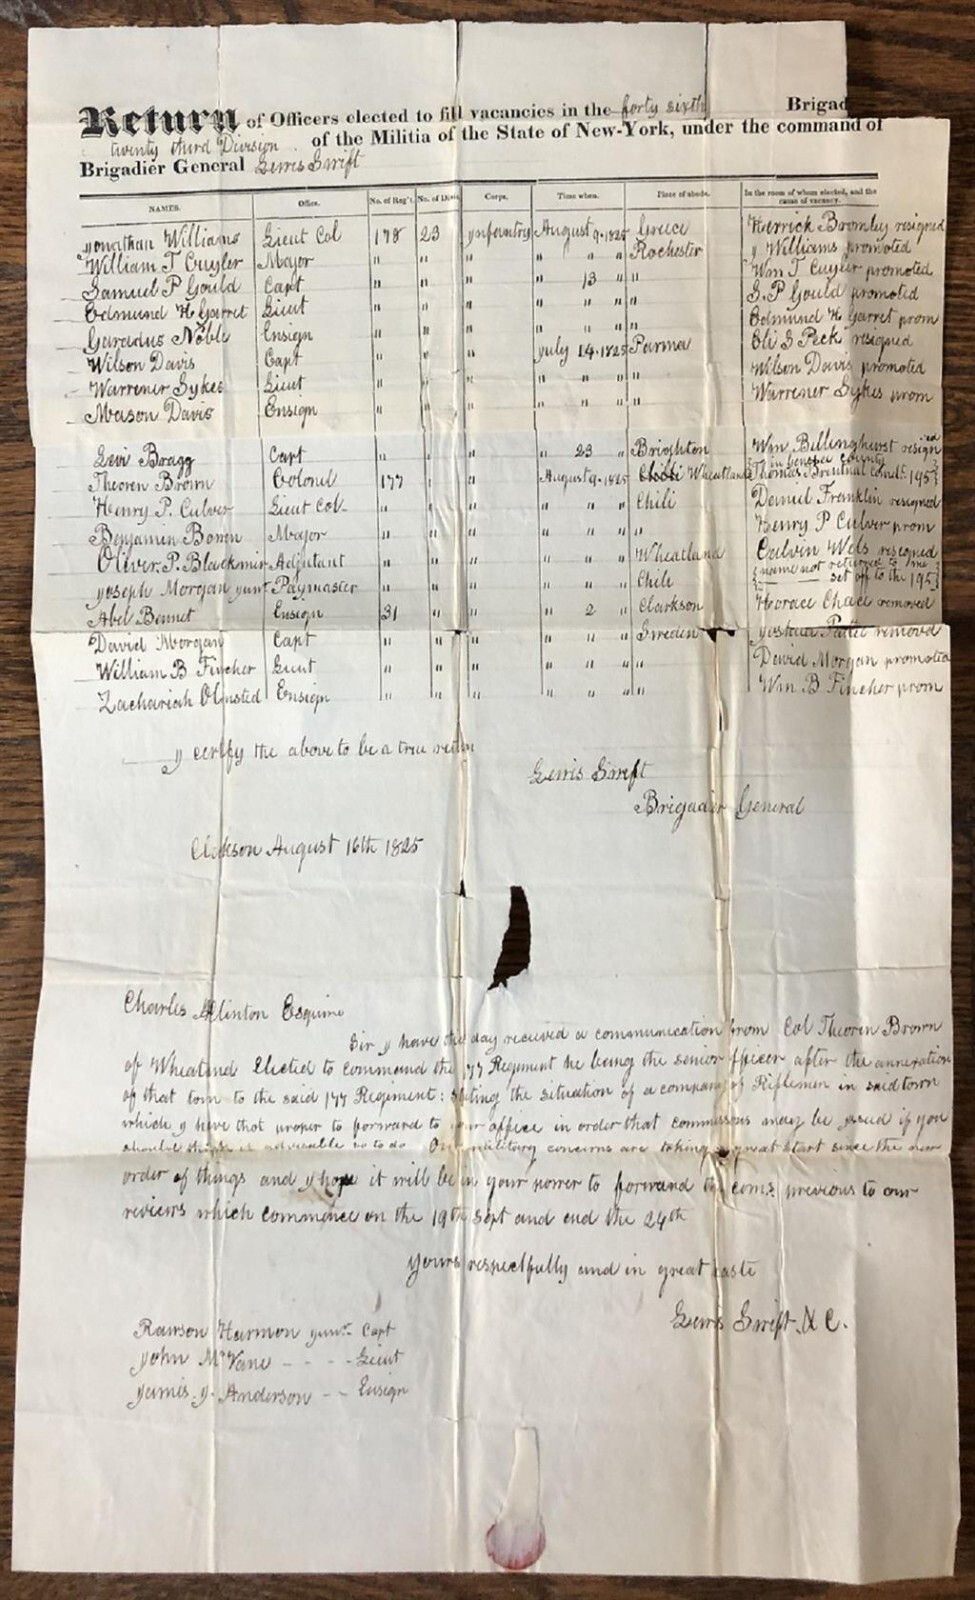 Return of Officers elected to fill vacancies in the forty sixth Brigad
twenty third Division of the Militia of the State of New-York, under the command of
Brigadier General Lewis Swift
NAMES. Office. No. of Reg't. No. of Divis. Corps. Time when. Place of abode. In the room of whom elected, and the cause of vacancy.
Jonathan Williams Lieut Col 178 23 Infantry August 9. 1825 Greece Herrick Bromley resigned
William T Cuyler Major " " " " " " Rochester J Williams promoted
Samuel P Gould Capt " " " " 13 " " Wm T Cuyler promoted
Edmund H Garret Lieut " " " " " " " S. P Gould promoted
Garadus Noble Ensign " " " " " " " Edmund H Garret prom
Wilson Davis Capt " " " July 14. 1825 Parma Eli S Peck resigned
Warrener Sykes Lieut " " " " " " " Wilson Davis promoted
Mason Davis Ensign " " " " " " " Warrener Sykes prom
Levi Bragg Capt " " " " 23 " Brighton Wm Billinghurst resigned
Theoren Brown Colonel 177 " " August 9. 1825 Chili Wheatland in Genesee County Thomas 195
Henry P. Culver Lieut Col- " " " " " " Chili Daniel Franklin resigned
Benjamin Bowen Major " " " " " " " Henry P Culver prom
Oliver. P. Blackmir Adjutant " " " " " " Wheatland Calvin Wels resigned
Joseph Morgan Junr Paymaster " " " " " " Chili name not returned to me set off to the 195
Abel Bennet Ensign 31 " " " 2 " Clarkson Horace Chace removed
David Morgan Capt " " " " " " Sweden Joshua removed
William B Fincher Lieut " " " " " " " David Morgan promoted
Zachariah Olmsted Ensign " " " " " " " Wm B Fincher prom
I certify the above to be a true return
Lewis Swift
Brigadier General
Clarkson August 16th 1825
Charles A Clinton Esquire
Sir I have the day received a communication from Col Theoren Brown
of Wheatland Elected to command the 177 Regiment he being the senior officer after the annexation
of that town to the said 177 Regiment: stating the situation of a company of Riflemen in said town
which I have that proper to forward to your office in order that commissions may be issued if you
should think it advisable so to do Our military concerns are taking a great start since the new
order of things and I hope it will be in your power to forward the coms previous to our
reviews which commence on the 19th Sept and end the 24th
Yours respectfully and in great haste
Lewis Swift
Rawson Harmon Junr Capt
John McVane - - - - Lieut
James. J. Anderson - - Ensign